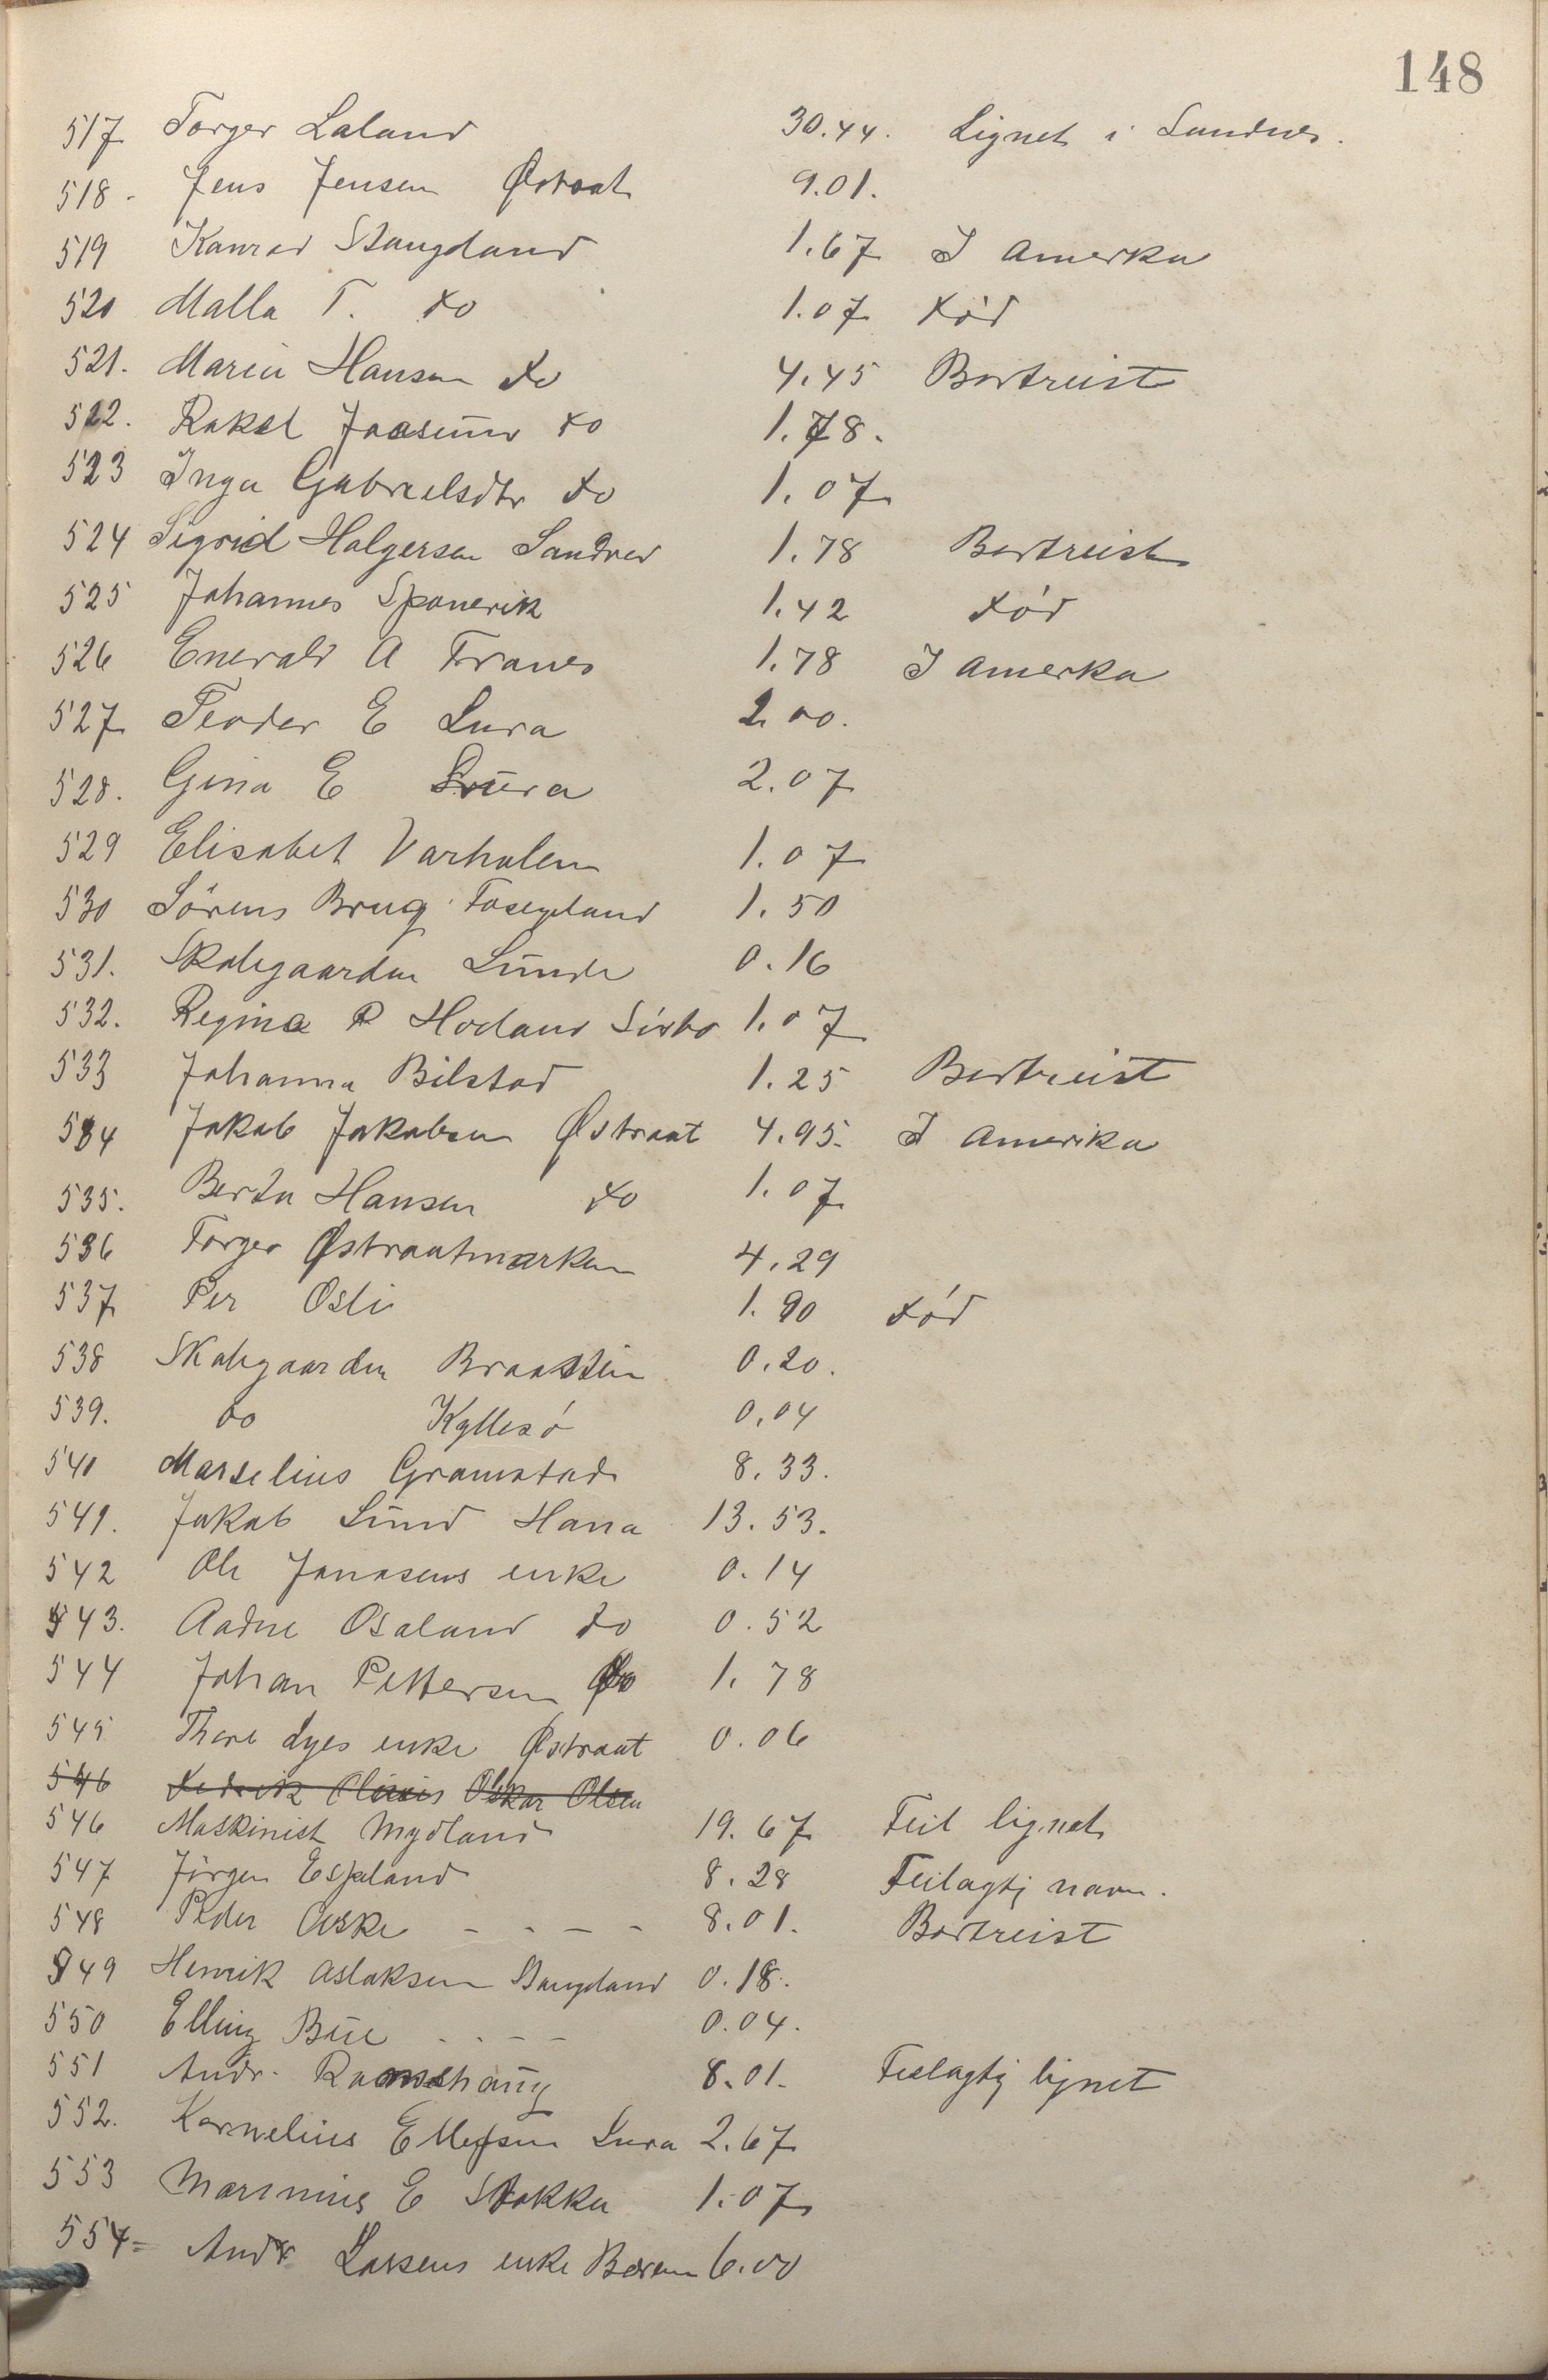 148
517 Torger Laland 30.44. Lignet i Sandnes.
518 - Jens Jensen Østraat 9.01.
519 Konrad Stangeland 1.67 I Amerka
520 Malla T. do 1.07 død
521. Maria Hansen do 4.45 Bortreist
522. Rakel do 1.78.
523 Inga Gabrielsdtr do 1.07
524 Sigrid Holgersen Sandnes 1.78 Bortreist
525 Johannes 1.42 død
526 Enevald A Tranes 1.78 I Amerka
527 Teodor E Lura 2.00.
528. Gina E Lura 2.07
529 Elisabet Varhalen 1.07
530 Sörens Brug 1.50
531. Skolegaarden Lunde 0.16
532. Regina R Hodland 1.07
533 Johanna Bilstad 1.25 Bortreist
534 Jakob Jakobsen Østraat 4.95. I Amerika
535. Berta Hansen do 1.07
536 Torger Østraatmarken 4.29
537 Per Osli 1.90 død
538 Skolegaarden Braastein 0.20.
539. do Kyllesø 0.04
540 Marselius Gramstad 8.33.
541. Jakob Lund Hana 13.53.
542 Ole Jonasens enke 0.14
543. Aadne Osaland do 0.52
544 Johan Pettersen do 1.78
545 Thore Lyes enke Østraat 0.06
546 Oskar Olsen
546 Maskinist Mydland 19.67 Feil lignet
547 Jörgen Espeland 8.28 Feilagtig navn.
548 Peder Aske - - - - 8.01. Bortreist
549 Henrik Aslaksen Stangeland 0.18.
550 Elling Bue - - - - 0.04.
551 Andr. Ramshaug 8.01. Feilagtig lignet
552. Kornelius Ellefsen Lura 2.67
553 Marinius E Stokka 1.07
554= Andr Larsens enke 6.00